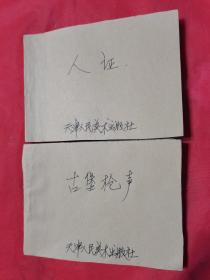 人证
天津人民美术出版社
古堡枪声
天津人民美术出版社